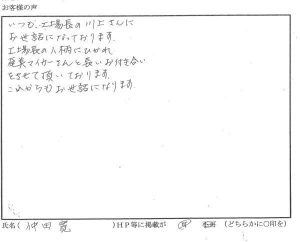 お客様の声
いつも、工場長の川上さんに
お世話になっております。
工場長の人柄にひかれ
奄美マイカーさんと長いお付き合い
をさせて頂いております。
これからもお世話になります。
氏名( 仲田 寛 )HP等に掲載が 可 (どちらかに○印を)